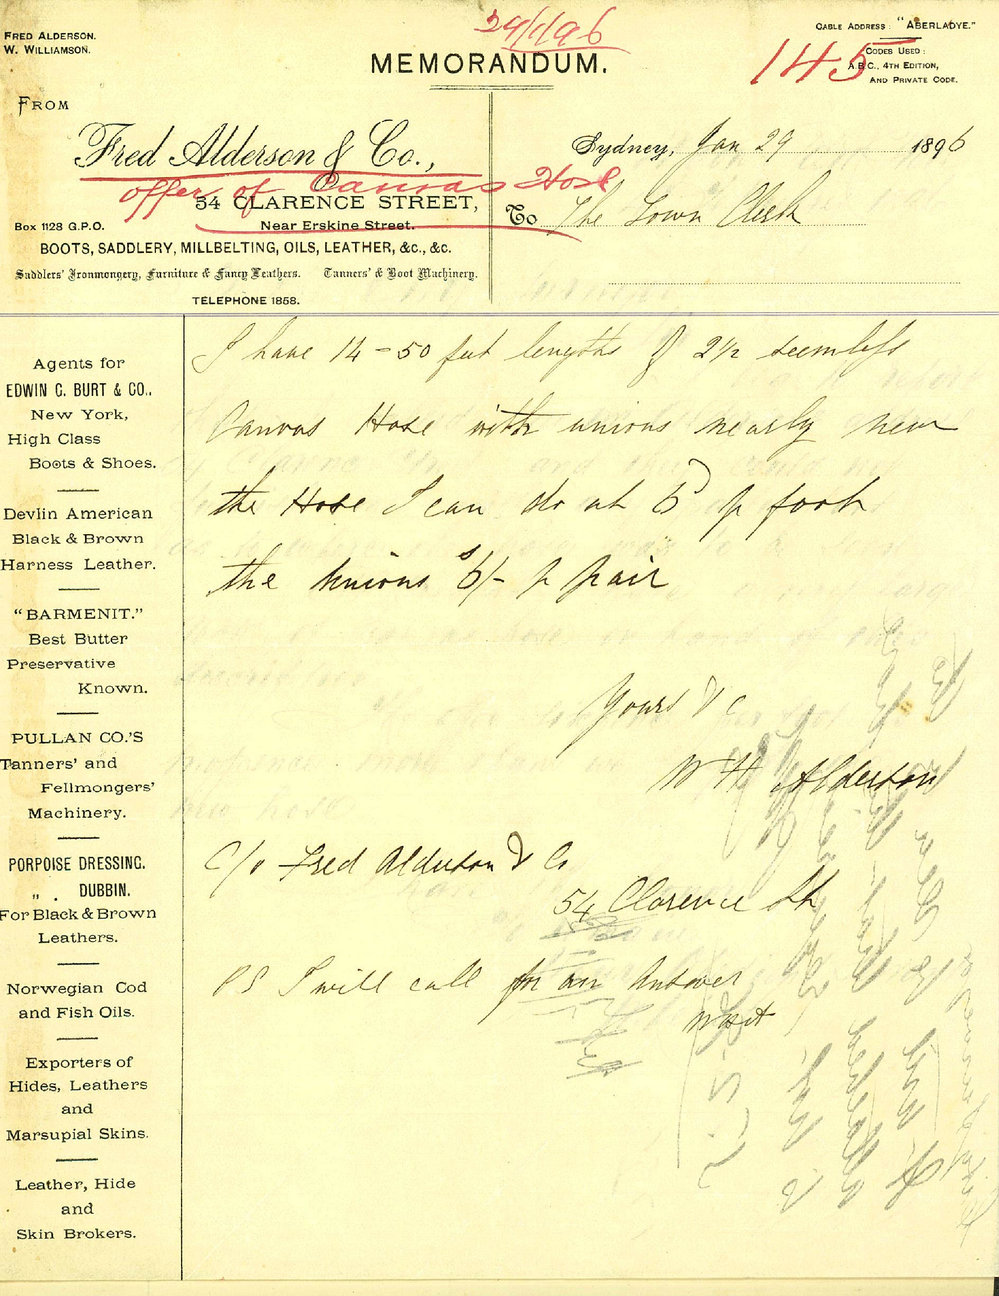 FRED ALDERSON.
W. WILLIAMSON.
29/1/96
CABLE ADDRESS: "ABERLADYE."
CODES USED:
A.B.C., 4TH EDITION,
AND PRIVATE CODE.
145
MEMORANDUM.
FROM
Fred Alderson & Co.,
offer of Canvas Hose
54 CLARENCE STREET,
Near Erskine Street.
Box 1128 G.P.O.
BOOTS, SADDLERY, MILLBELTING, OILS, LEATHER, &c., &c.
Saddlers' Ironmongery, Furniture & Fancy Leathers. Tanners' & Boot Machinery.
TELEPHONE 1858.
Sydney, Jan 29 1896
To The Town Clerk
Agents for
EDWIN C. BURT & CO.,
New York,
High Class
Boots & Shoes.
Devlin American
Black & Brown
Harness Leather.
"BARMENIT."
Best Butter
Preservative
Known.
PULLAN CO.'S
Tanners' and
Fellmongers'
Machinery.
PORPOISE DRESSING.
„ . DUBBIN.
For Black & Brown
Leathers.
Norwegian Cod
and Fish Oils.
Exporters of
Hides, Leathers
and
Marsupial Skins.
Leather, Hide
and
Skin Brokers.
I have 14 - 50 feet lengths of 2½ seemless
Canvas Hose with unions nearly new
the Hose I can do at 6D p foot
the unions 6/- p pair
Yours &c
W H Alderson
C/o Fred Alderson & Co
54 Clarence St
PS I will call for an Answer